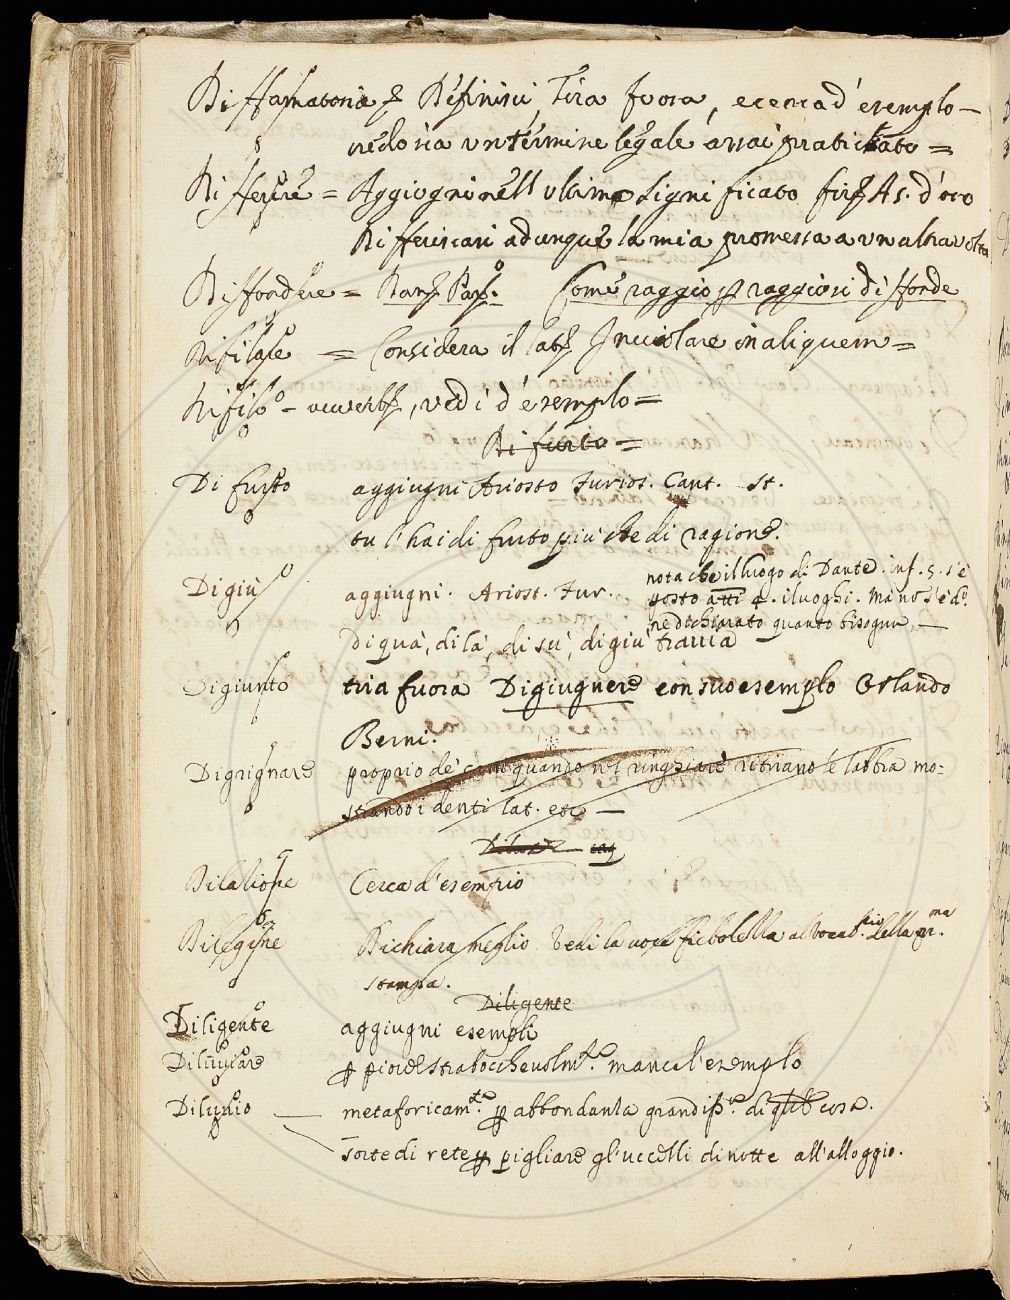 Diffamatoria Definisci, Tira fuora, e cerca d'esemplo
credo sia un termine legale assai praticato =
Differire = Aggiugni nell'ultimo significato As. d'oro
Differiscasi adunque la mia promessa a un'altra volta
Diffondere = Dant. Par. Come raggio raggiosi diffonde
Difilare = Considera il lat. Involare in aliquem =
Difilo - avverb, vedi d'esemplo =
Di furto =
Di furto aggiugni Ariosto Furios. Cant. St.
tu l'hai di furto più che di ragione.
nota che il luogo di Dante. inf. 5. s'è
Digiù aggiugni. Ariost. Fur. posto a i luoghi. Ma non s'è
ne dichiarato quanto bisogna —
Di quà, di là, di sù, di giù
Digiunto tria fuora Digiugnere con suo esemplo Orlando
Berni.
Digrignare proprio de' cani quando nel ringhiare ritirano le labbra mo=
strando i denti lat. etc —
Dilatione Cerca d'esempio
Dilegine Dichiara meglio Vedi la voce al vocab.rio della pr.ma
stampa.
Diligente
Diligente aggiugni esempli
Diluviare strabocchevolm.te manca l'exemplo
Diluvio — metaforicam.te abbondanza grandiss.a di cosa.
Sorte di rete pigliare gl'uccelli di notte all'alloggio.